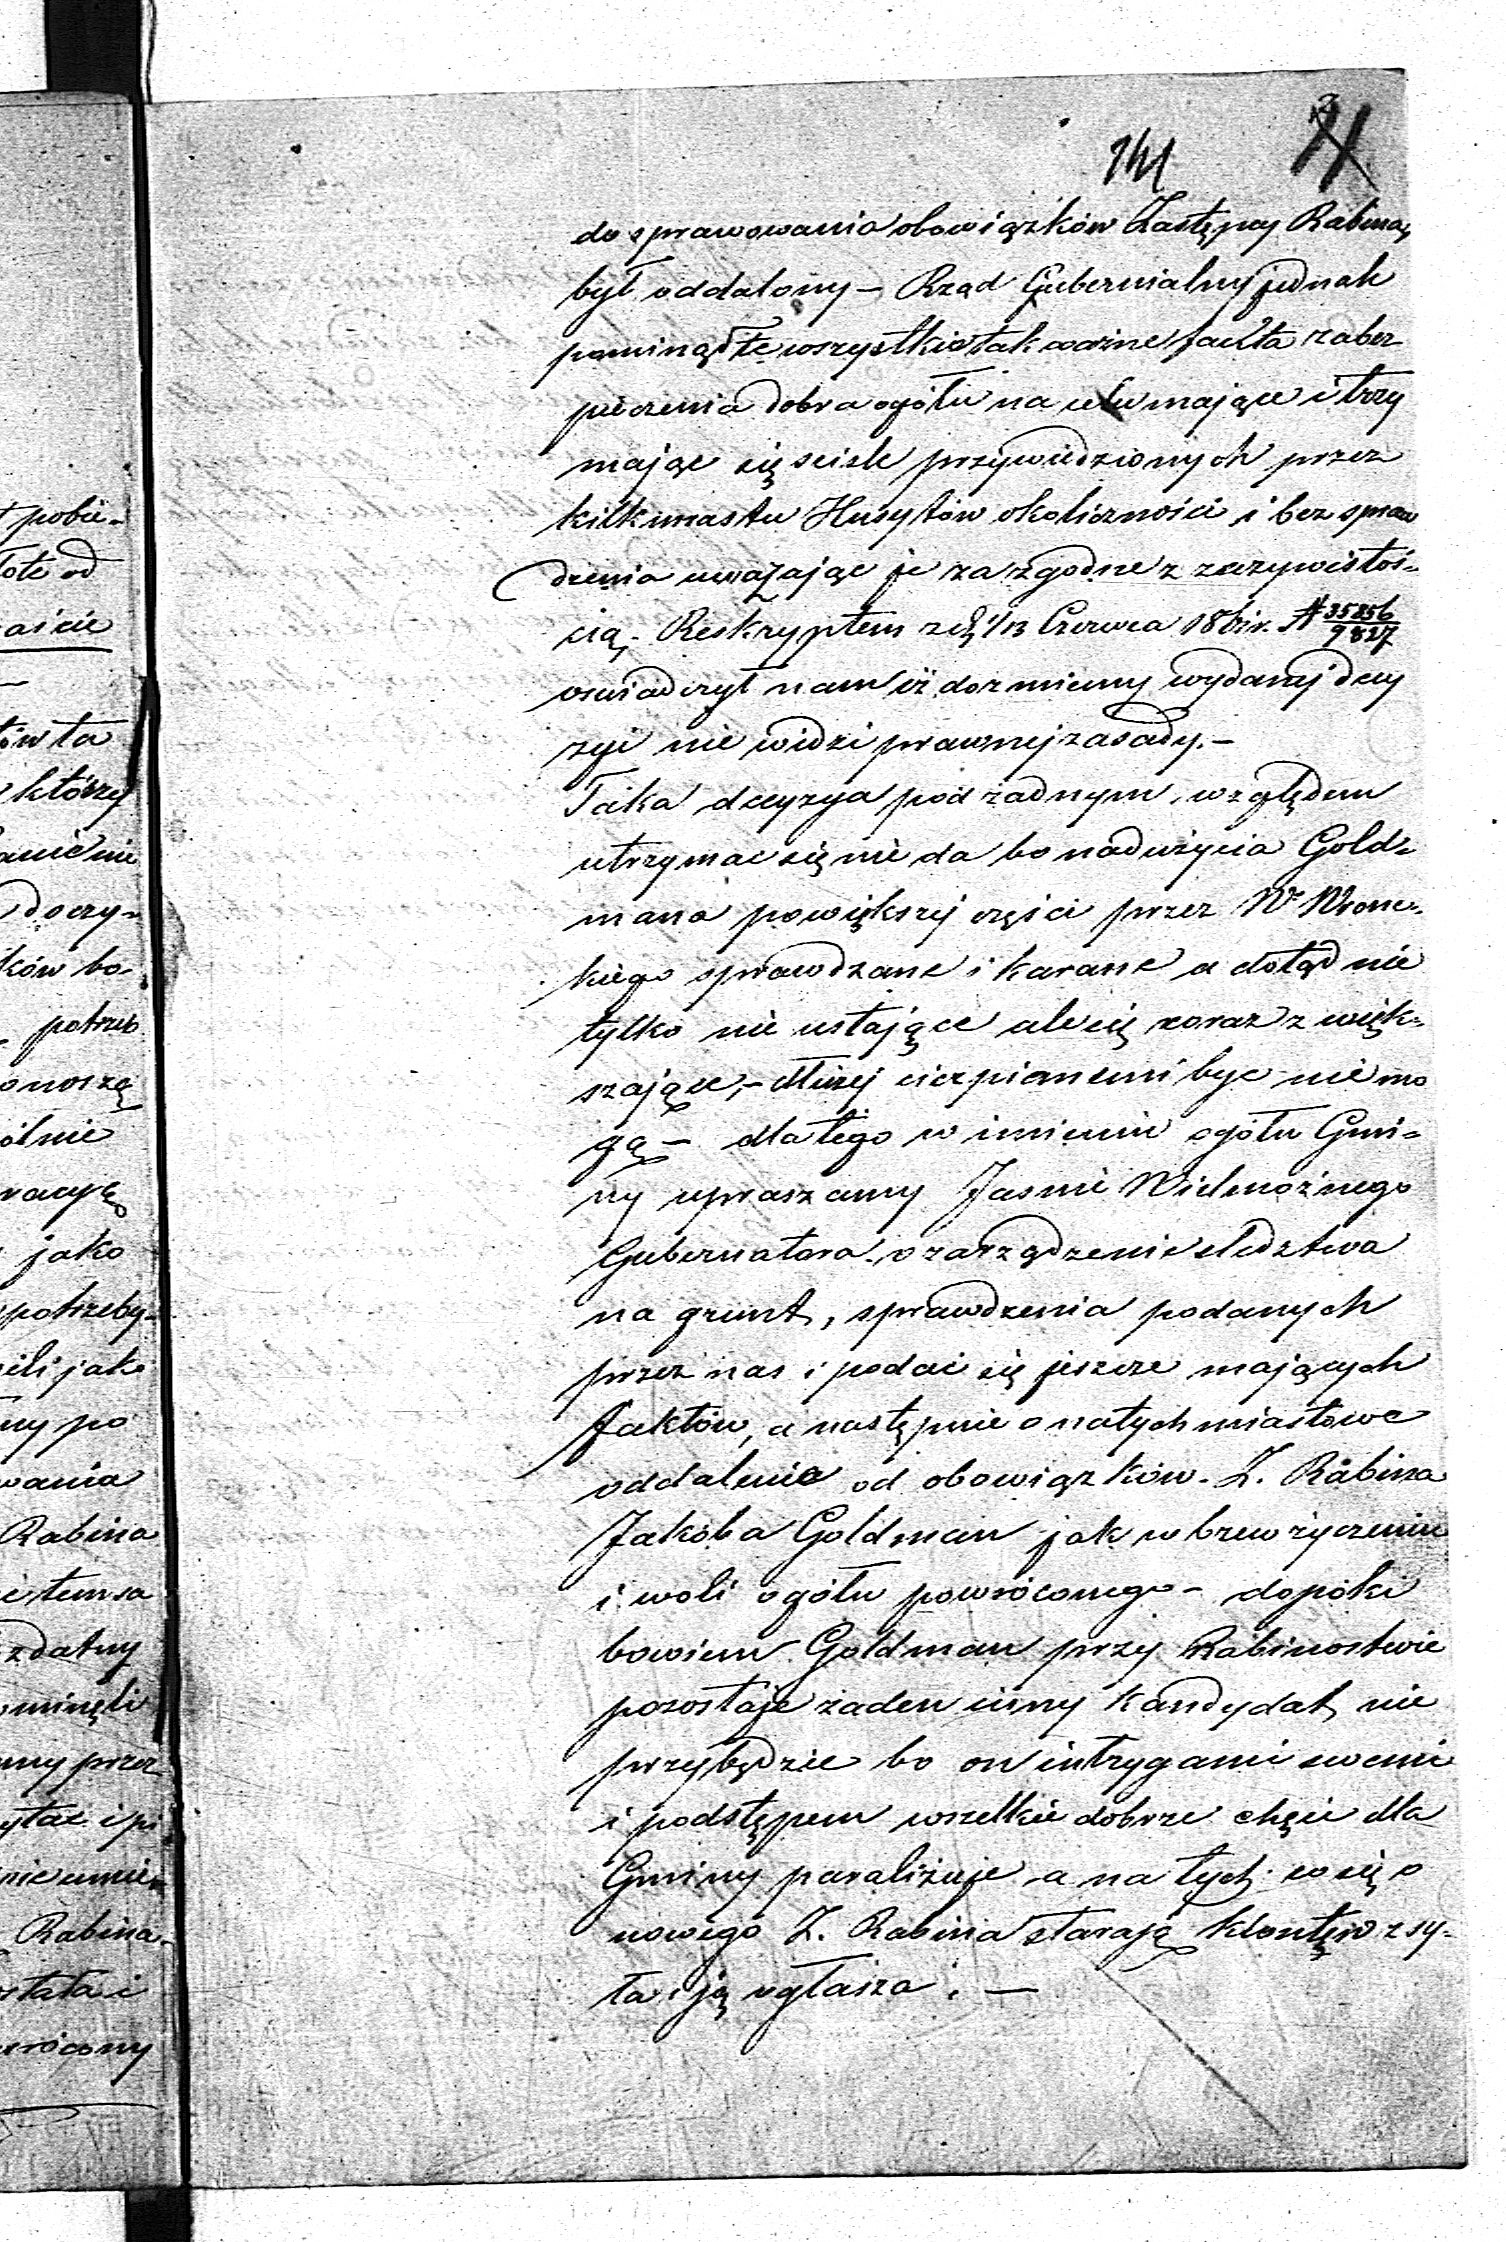 141
do sprawowania obowiązków Zastępcy Rabina,
był oddalony – Rząd Gubernialny jednak
pominął te wszystkie tak ważne facta zabez
pieczenia dobra ogółu na celu mające i trzy
mając się scisle przywiedzionych przez
kilkunastu Husytów okoliczności i bez spraw
dzenia uważając je za zgodne z rzeczywistoś=
cią, – Reskryptem z d. 1/13 Czerwca 186 r. № 35856/9827
oswiadczył nam iż do zmiany wydanej decy
zyi nie widzi prawnej zasady. –
Taka decyzya pod żadnym względem
utrzymac się nie da bo nadużycia Gold=
mana powiększej części przez W Wronc=
kiego sprawdzane i karane a dotąd nie
tylko nie ustające ale się coraz zwięk=
szające, – dłużej cierpianemi byc nie mo
gą – dla tego w imieniu ogółu Gmi=
ny upraszamy Jasnie Wielmożnego
Gubernatora o zarządzenie sledztwa
na grunt, sprawdzenia podanych
przez nas i podać się jeszcze mających
faktów, a następnie o natychmiastowe
oddalenie od obowiązków Z. Rabina
Jakóba Goldman jak wbrew życzeniu
i woli ogółu powróconego – dopóki
bowiem Goldman przy Rabinostwie
pozostaje żaden inny kandydat nie
przybędzie bo on intrygami swemi
i podstępem wszelkie dobrze chęcie dla
Gminy paraliżuje a na tych co się o
nowego Z. Rabina starają klontęw zsy=
ła i ją ogłasza. –
pobie=
ote od
którzy
doczy=
ków bo
potrzeb
onoszą
ólnie
jako
potrzeby
ili jako
ny po
wania
Rabina
zdatny
minęli
ny przez
ytac i pi
nie umie=
Rabina
stała i
wrócony